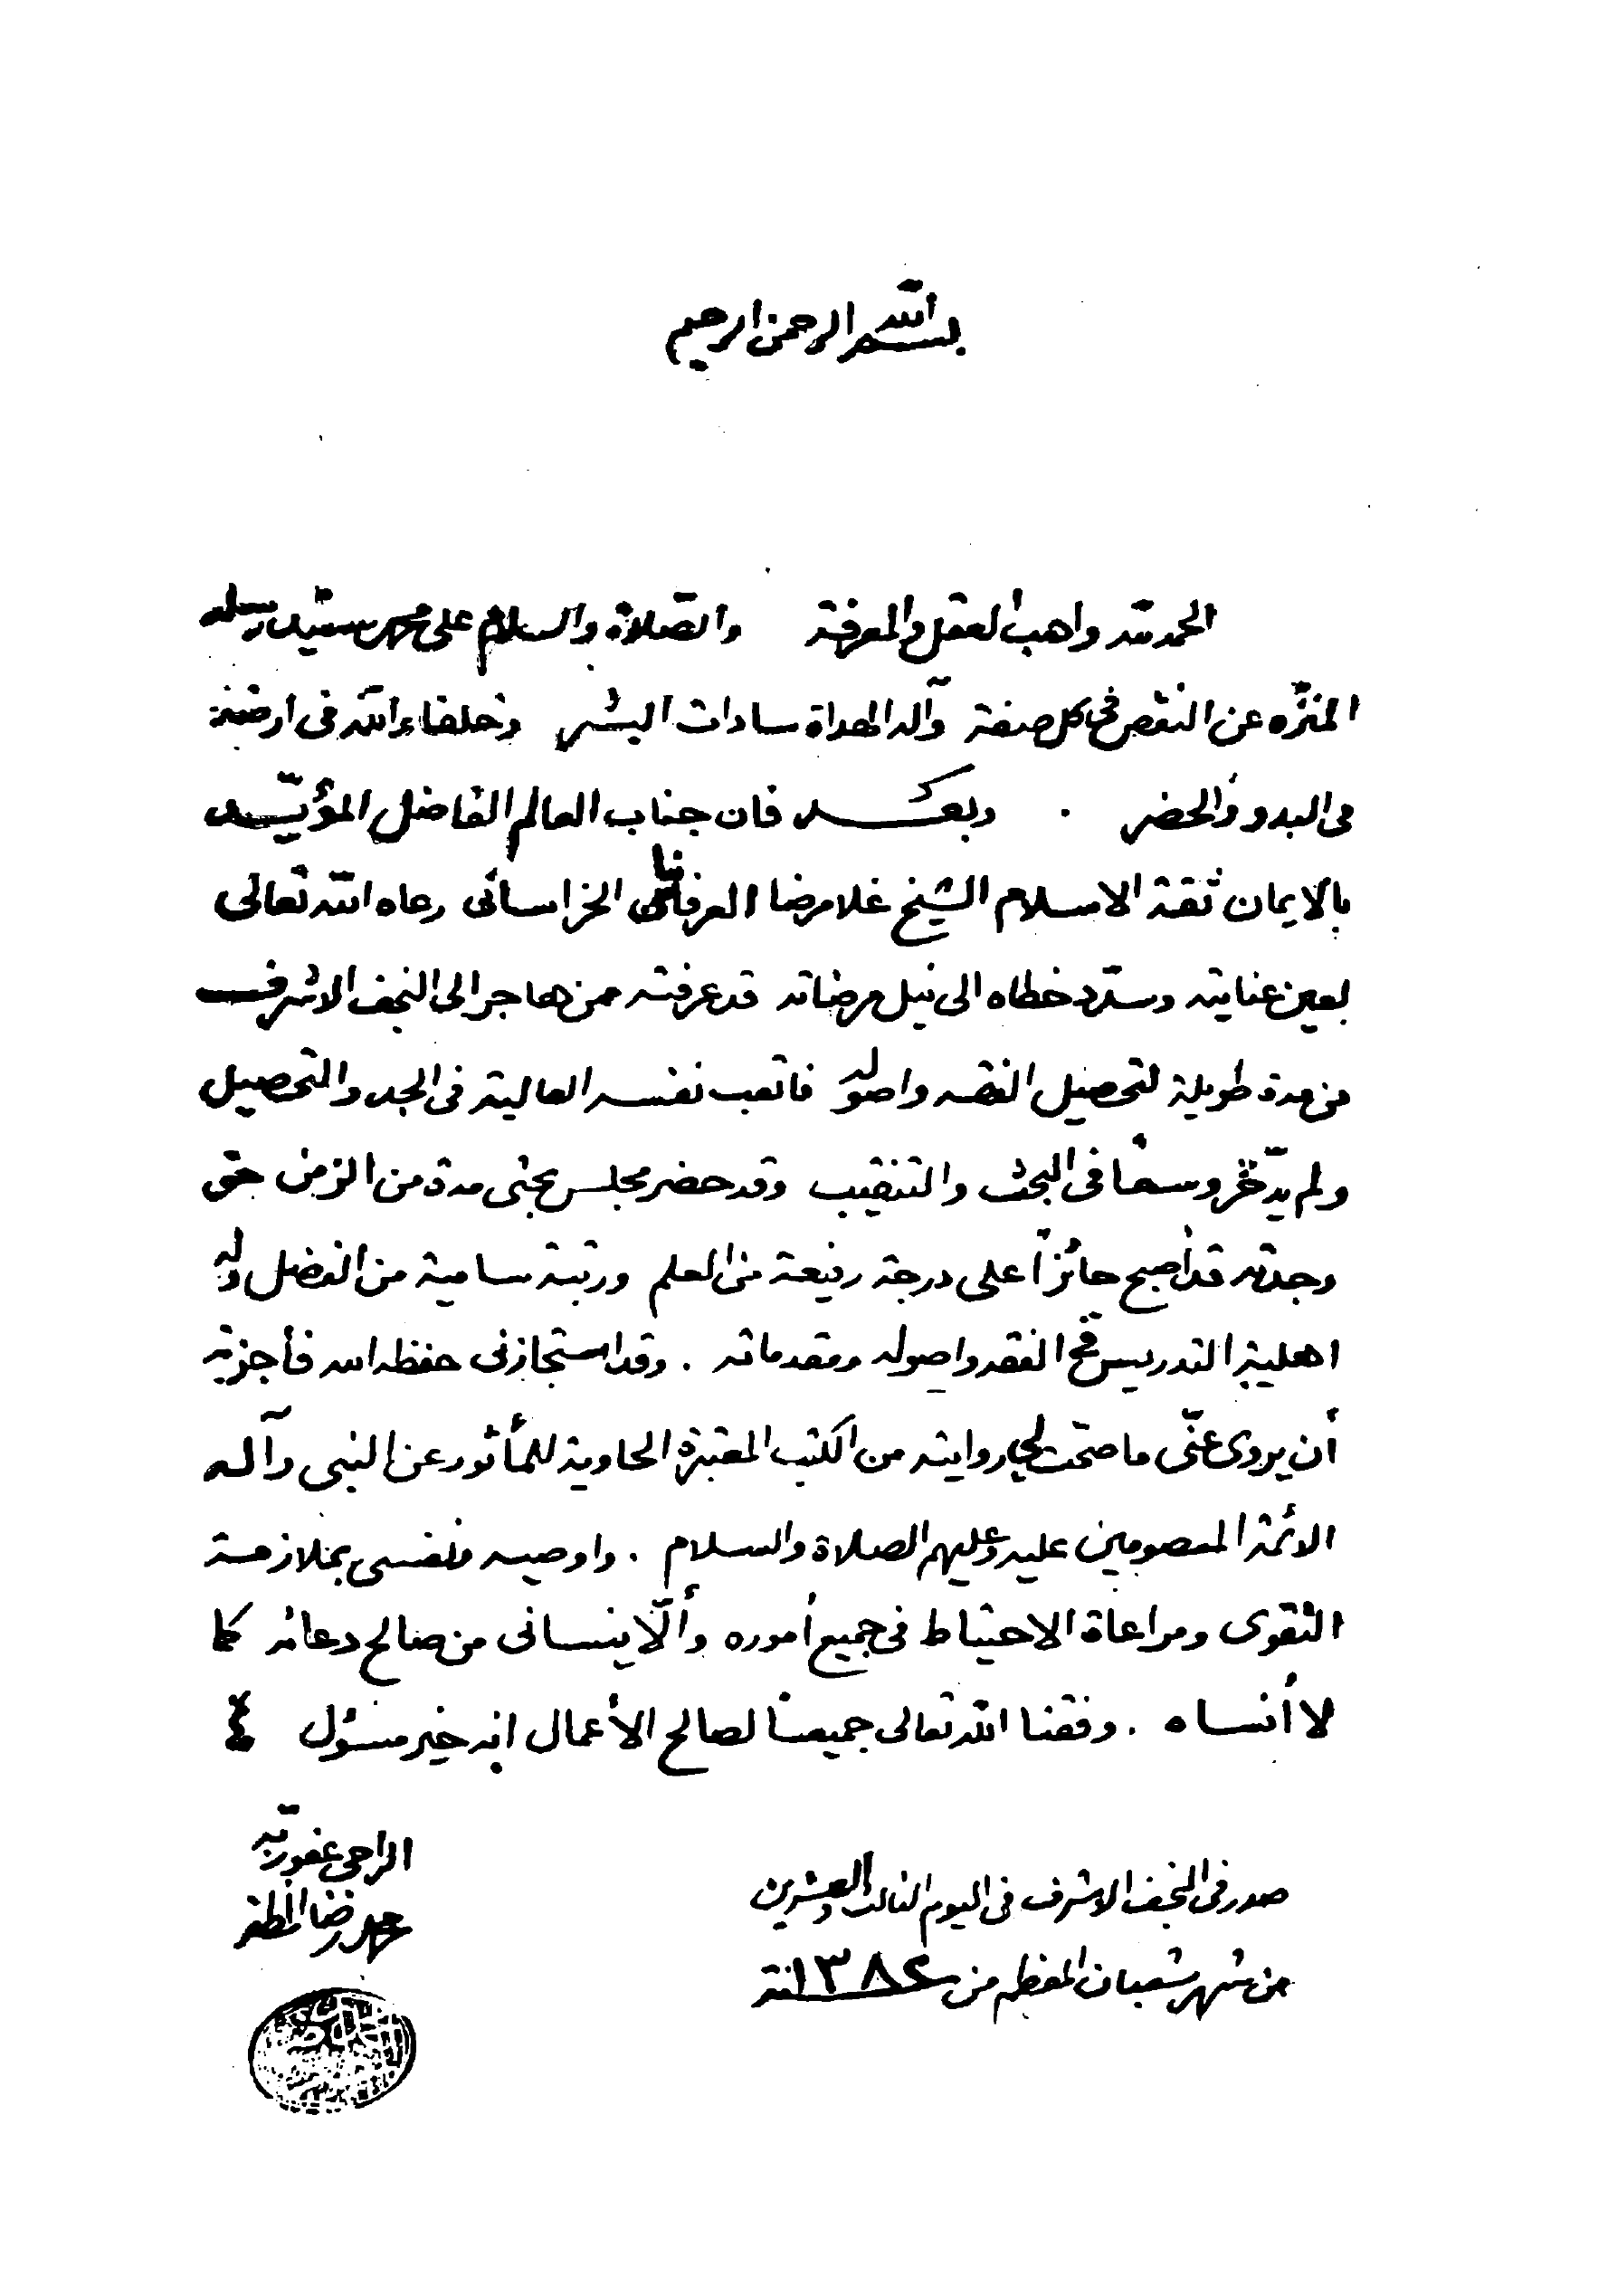 بسم الله الرحمن الرحيم
الحمد لله واهب العقل والمعرفة والصلاة والسلام على محمد سيد رسله
المنزّه عن النقص في كل صفة وآله الهداة سادات البشر وخلفاء الله في ارضه
في البدو والحضر . وبعد فان جناب العالم الفاضل المؤيّد
بالايمان ثقة الاسلام الشيخ غلامرضا العرفانيان الخراساني رعاه الله تعالى
بعين عنايته وسدّد خطاه الى نيل مرضاته قد عرفته ممن هاجر الى النجف الاشرف
من مدة طويلة لتحصيل الفقه واصوله فاتعب نفسه العالية في الجد والتحصيل
ولم يدّخر وسعاً في البحث والتنقيب وقد حضر مجلس بحثي مدة من الزمن حتى
وجدته قد أصبح حائزاً على درجة رفيعة من العلم ورتبة سامية من الفضل وله
اهلية التدريس في الفقه واصوله ومقدماته . وقد استجازني حفظه الله فأجزته
أن يروي عنّي ما صحّت لي روايته من الكتب المعتبرة الحاوية للمأثور عن النبي وآله
الائمة المعصومين عليه وعليهم الصلاة والسلام . واوصيه ونفسي بملازمة
التقوى ومراعاة الاحتياط في جميع أموره وألّا ينساني من صالح دعائه كما
لا أنساه . وفقنا الله تعالى جميعاً لصالح الأعمال انه خير مسئول
صدر في النجف الاشرف في اليوم الثالث والعشرين
من شهر شعبان المعظم من سنة ١٣٨٢
الراجي عفو ربّه
محمد رضا المظفر